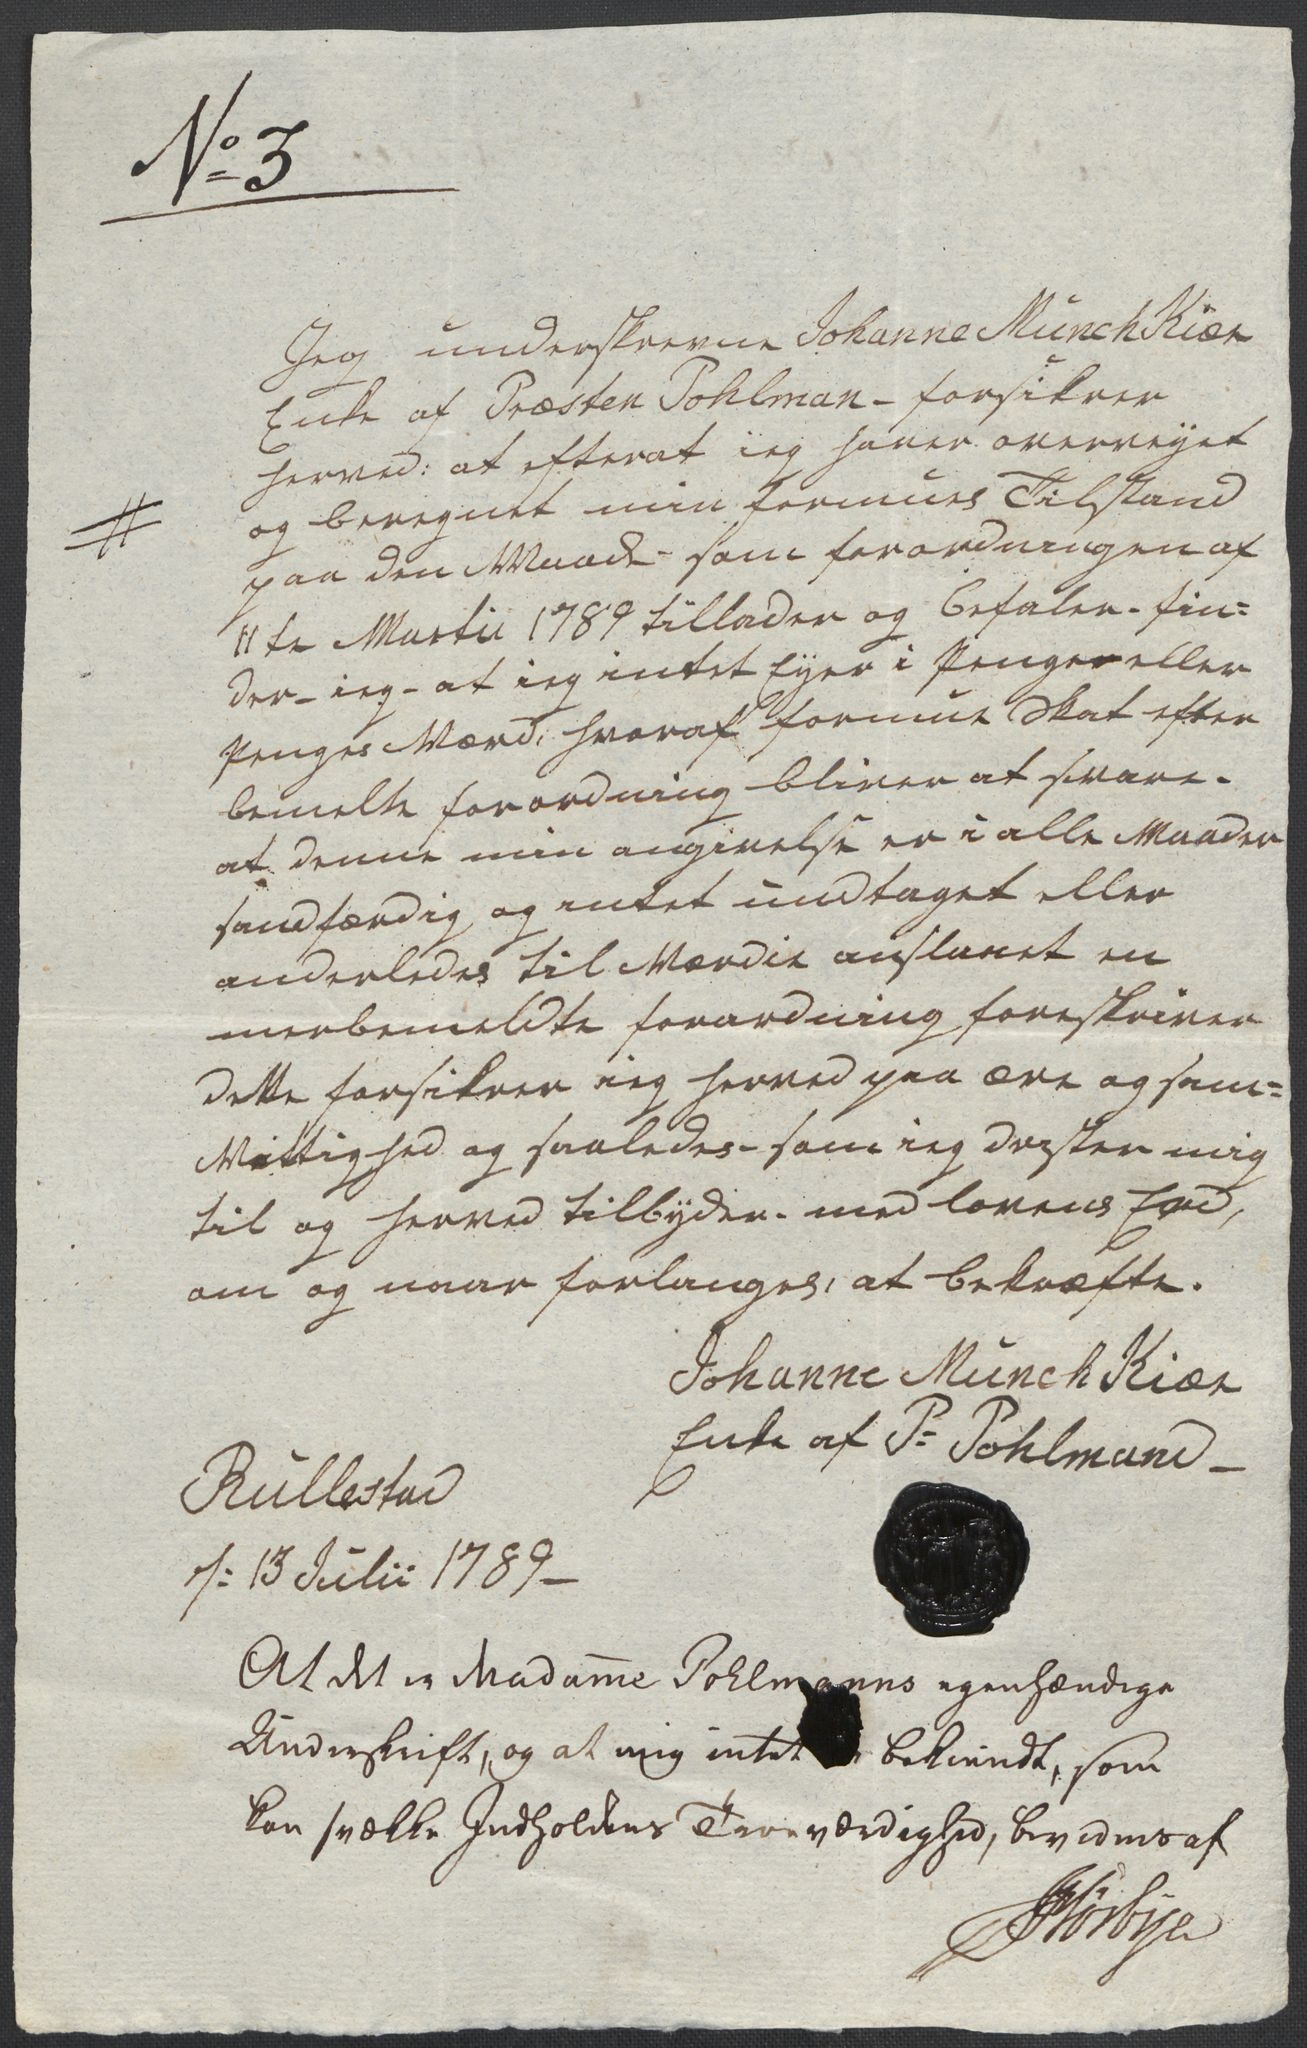 No 3
Jeg underskrevne Johanne Münch Kiær
Enke af Præsten Pohlman - forsikrer
herved: at efterat ieg haver overveyet
og beregnet min formues Tilstand
paa den Maade - som forordningen af
11te Martii 1789 tillader og befaler - fin=
der - ieg - at ieg intet Eyer i Penge eller
Penges Værd, hvoraf formue Skat efter
bemelte forordning bliver at svare -
at denne min angivelse er i alle Maader
sandfærdig og intet undtaget eller
anderledes til Værdie anslaaet en
merbemeldte forordning foreskriver
dette forsikrer ieg herved paa ære og sam=
Vittighed og saaledes - som ieg drister mig
til og herved tilbyder - med lovens Eed,
om og naar forlanges, at bekræfte.
Johanne Münch Kiær
Enke af P= Pohlmand -
Rullestad
d: 13 Julii 1789 -
At det er Madame Pohlmanns egenhændige
Underskrift, og at mig intet bekiendt, som
kan svække Indholdens Troeværdighed, bevidnes af